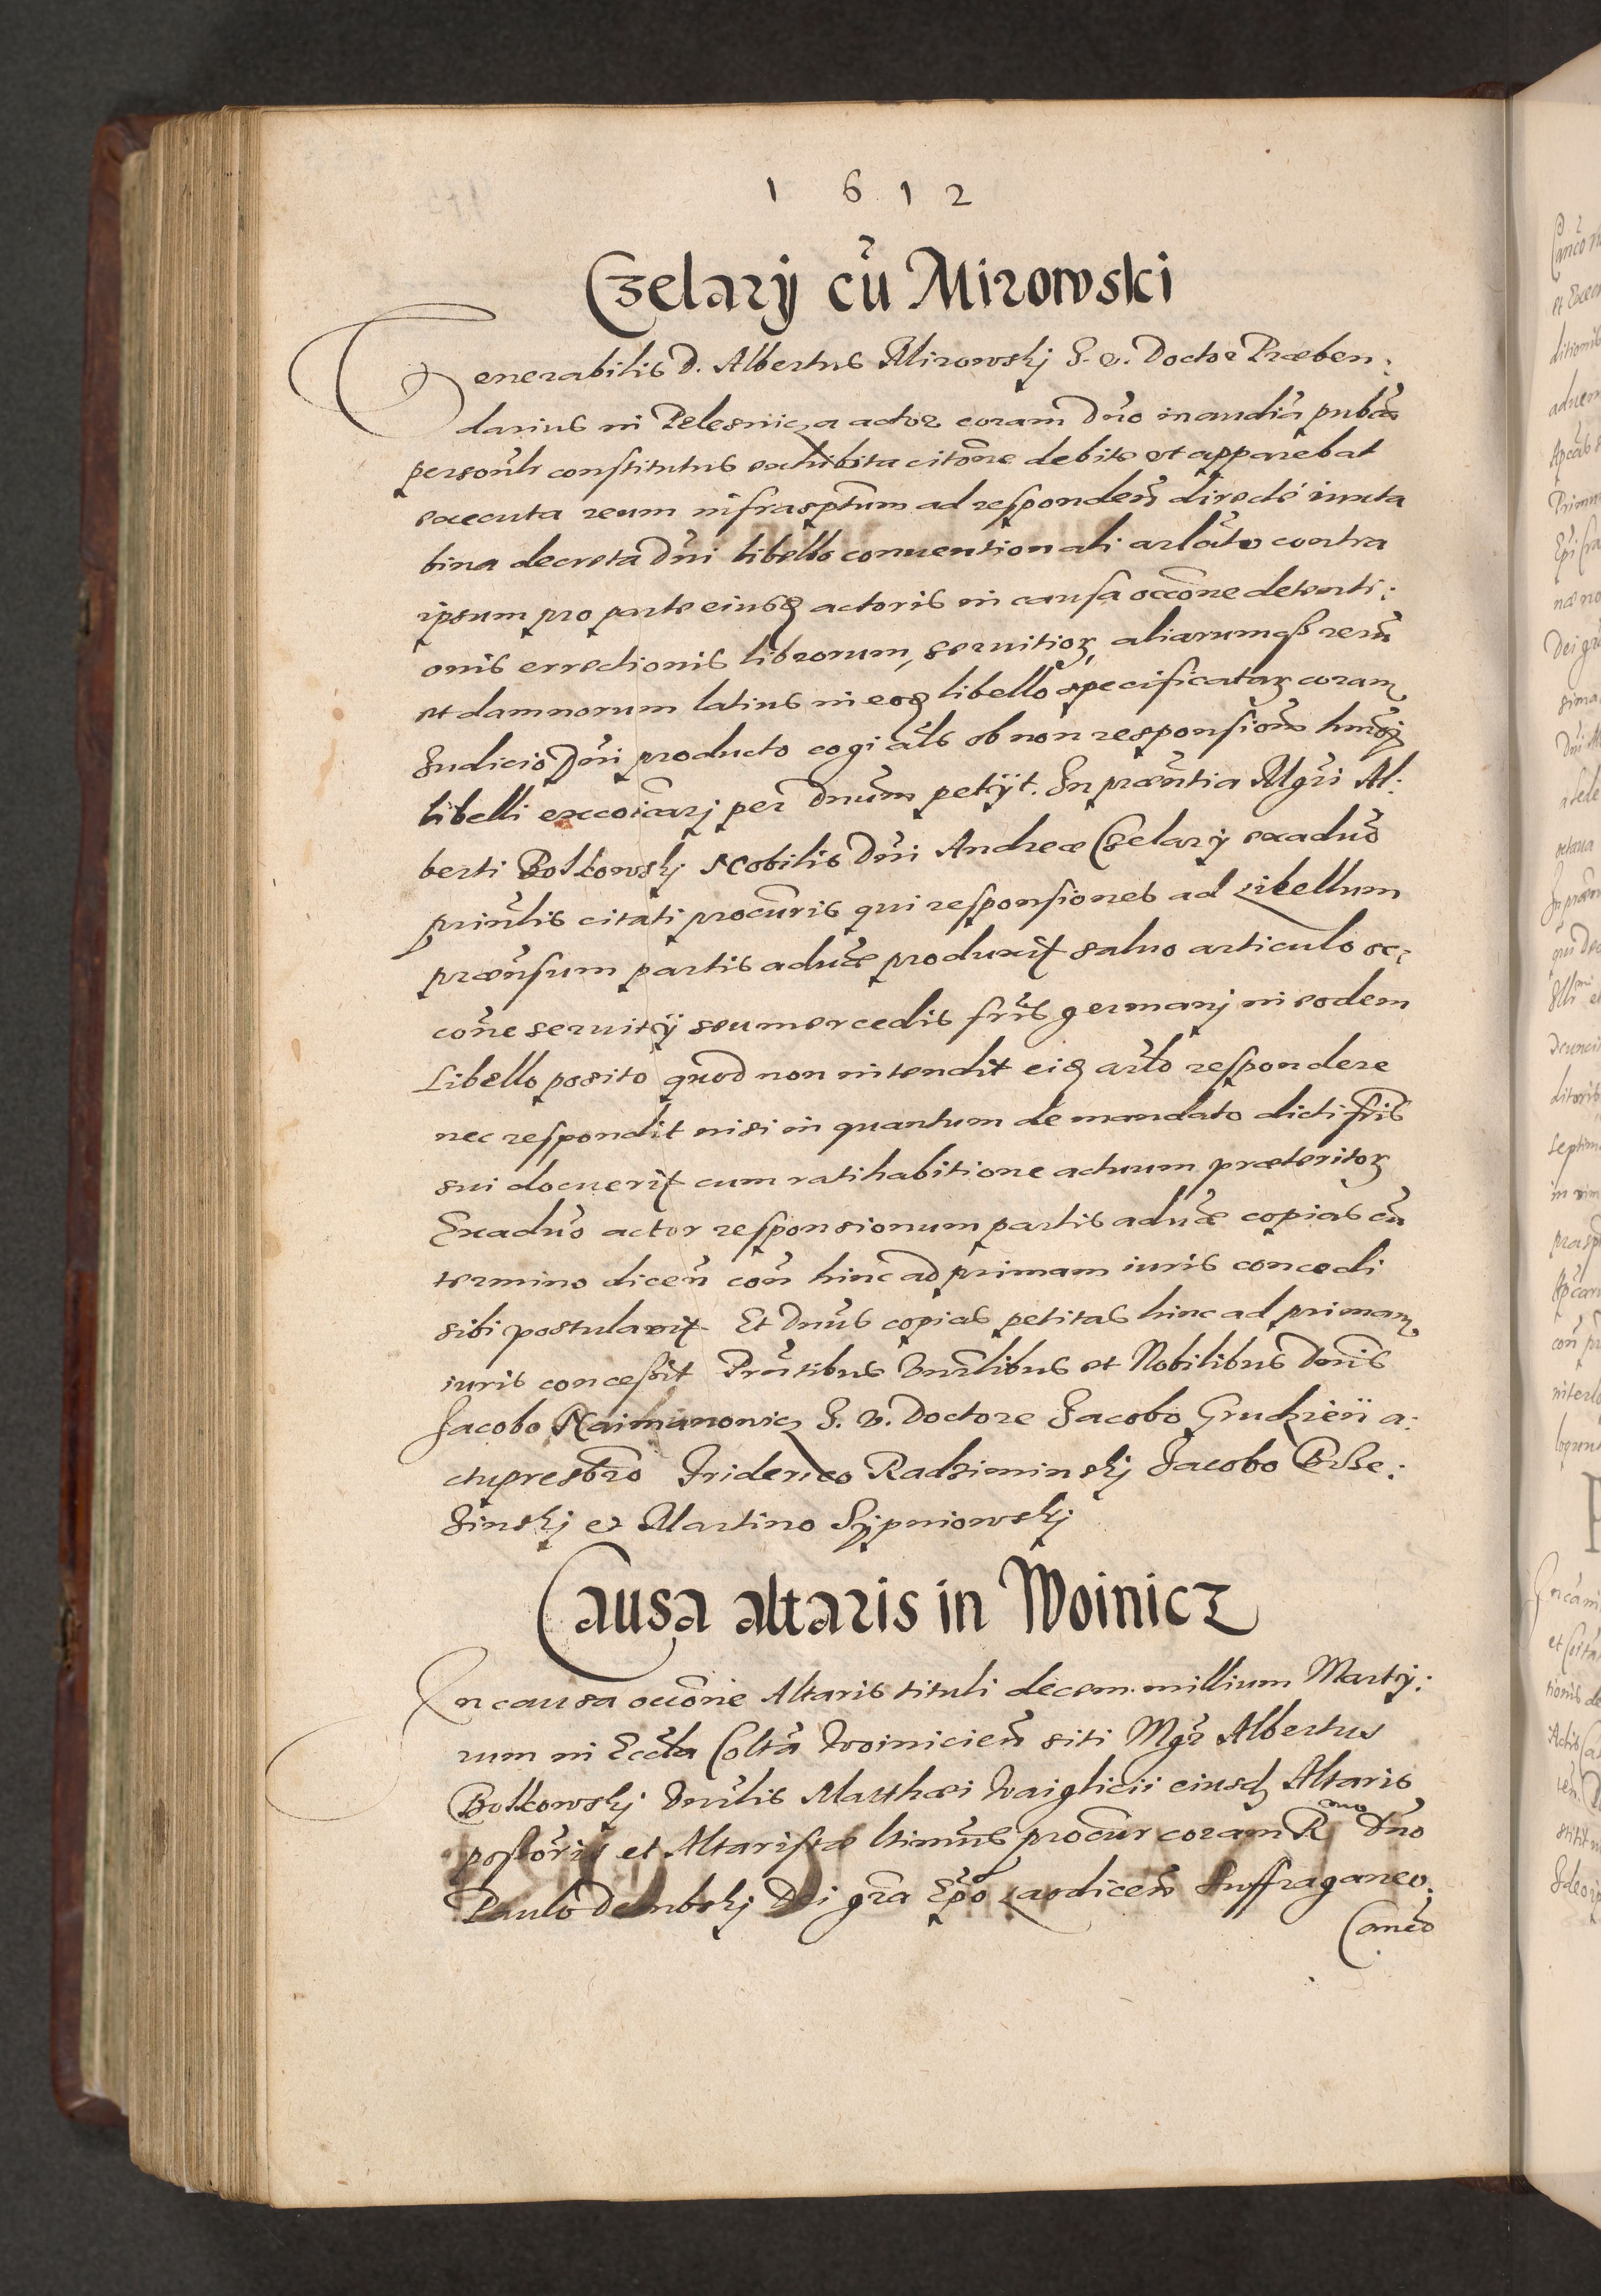 1612
Czelarÿ cũ Mirowski
Venerabilis D. Albertus Mirowskj J. V. Doctor Præben:
darius in Pelesnicza actor coram Dño in audiã pubcã
persoñlr constitutus exhibita citõne debite vt apparebat
executa reum infrasptum ad respondeñ directe iuxta
bina decreta Dñi libello conuentionali arlãto contra
ipsum pro parte eiusđ actoris in causa occõne detenti:
onis errectionis librorum, seruitioꝝ, aliarumqꝫ rerũ
et damnorum latius in eođ libello specificataꝝ coram
Judicio Dñi producto cogi als ob non responsionẽ hmõi
libelli excoĩcarj per Dnum petÿt. In præñtia Mgri Al:
berti Bolkowskj Nobilis Dñi Andreæ Czelarÿ exaduõ
priñlis citati procuris qui responsiones ad Libellum
præñsum partis aduæ produxit saluo articulo oc:
cone seruitÿ seu mercedis fris germanj in eodem
Libello posito quod non intendit eiđ arlo respondere
nec respondit nisi in quantum de mandato dicti fris
sui docuerit cum ratihabitione actuum præteritoꝝ
Exaduõ actor responsionum partis aduæ copias cũ
termino diceñ coñ hinc ad primam iuris concedi
sibi postulavit Et Dnus copias petitas hinc ad primam
iuris concessit Prñtibus Vnrlibus et Nobilibus Dnis
Jacobo Naimanowicz J. V. Doctore Jacobo Grudzień a:
chypresbro Friderico Radziminskj Jacobo Brze:
zinskj et Martino Sypniowskj
Causa altaris in Woinicz
In causa occõne Altaris tituli decem millium Marty:
rum in Eccła Coltã Woinicieñ siti Mgr Albertus
Bolkowskj Vnrlis Matthæi Waiglicii eiusđ Altaris
possoris et Altaristæ ltimus procur coram Rmo Dño
Paulo Dembskj Dei gra Epo Laodiceñ Suffraganeo
Canco